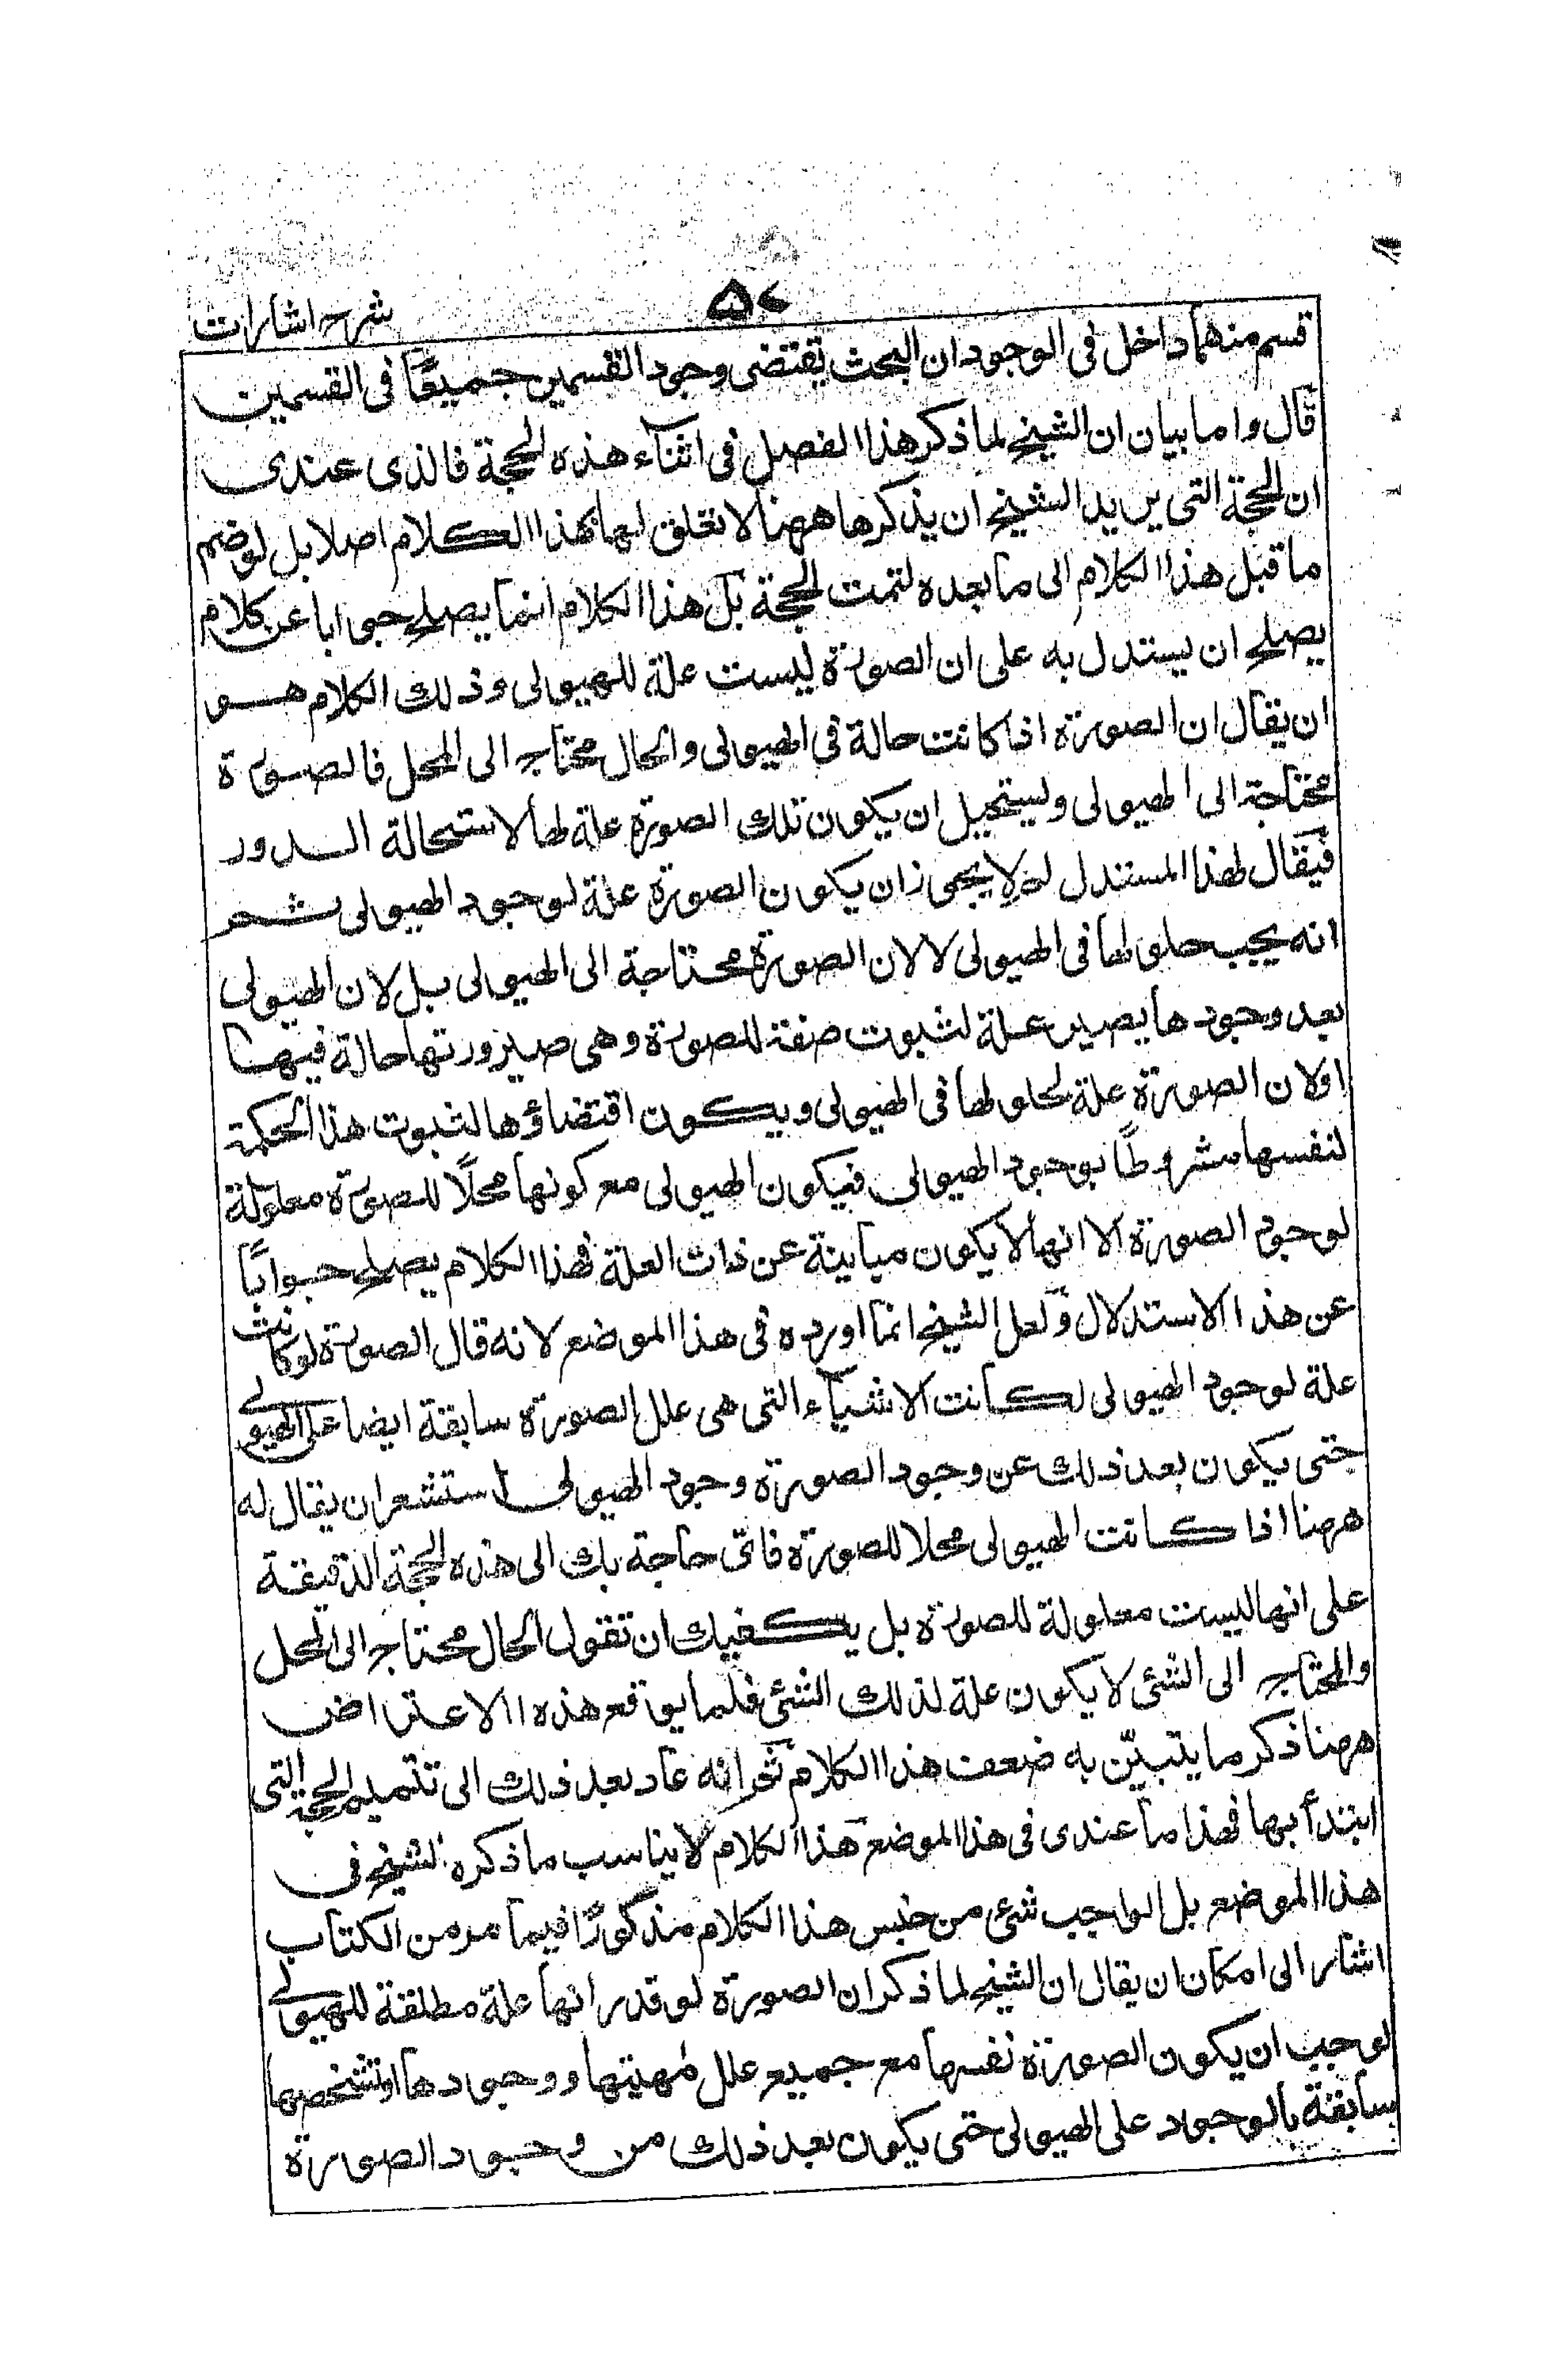 شرح اشارات
٥٢
قسم منهما داخل فى الوجود ان البحث يقتضى وجود القسمين جميعًا فى القسمين
قال واما بيان ان الشيخ لما ذكر هذا الفصل فى اثناء هذه الحجة فالذى عندى
ان الحجة التى يريد الشيخ ان يذكرها ههنا لا تعلق لها بهذا الكلام اصلا بل لوضم
ما قبل هذا الكلام الى ما بعده لتمت الحجة بل هذا الكلام انما يصلح جوابا عن كلام
يصلح ان يستدل به على ان الصورة ليست علة للهيولى وذلك الكلام هو
ان يقال ان الصورة اذا كانت حالة فى الهيولى والحال محتاج الى المحل فالصورة
محتاجة الى الهيولى ويستحيل ان يكون تلك الصورة علة لها لاستحالة الدور
فيقال لهذا المستدل لم لا يجوز ان يكون الصورة علة لوجود الهيولى ثم
انه يجب حلولها فى الهيولى لا لان الصورة محتاجة الى الهيولى بل لان الهيولى
بعد وجودها يصير علة لثبوت صفة للصورة وهى صيرورتها حالة فيها
اولان الصورة علة لحلولها فى الهيولى ويكون اقتضاؤها لثبوت هذا الحكمة
لنفسها مشروطًا بوجود الهيولى فيكون الهيولى مع كونها محلًا للصورة معلولة
لوجود الصورة الا انها لا يكون مباينة عن ذات العلة فهذا الكلام يصلح جوابًا
عن هذا الاستدلال ولعل الشيخ انما اورده فى هذا الموضع لانه قال الصورة لو كانت
علة لوجود الهيولى لكانت الاشياء التى هى علل الصورة سابقة ايضا على الهيولى
حتى يكون بعد ذلك عن وجود الصورة وجود الهيولى استشعر ان يقال له
ههنا اذا كانت الهيولى محلا للصورة فاى حاجة بك الى هذه الحجة الدقيقة
على انها ليست معلولة للصورة بل يكفيك ان تقول الحال محتاج الى المحل
والمحتاج الى الشئ لا يكون علة لذلك الشئ فلما يوقع هذه الاعتراض
ههنا ذكر ما يتبيّن به ضعف هذا الكلام ثم انه عاد بعد ذلك الى تتميم الحجة التى
ابتدأ بها فهذا ما عندى فى هذا الموضع هذا الكلام لا يناسب ما ذكره الشيخ فى
هذا الموضع بل الواجب شئ من جنس هذا الكلام مذكورًا فيما مر من الكتاب
اشار الى امكان ان يقال ان الشيخ لما ذكر ان الصورة لو قدر انها علة مطلقة للهيولى
لوجب ان يكون الصورة نفسها مع جميع علل مهيتها ووجودها او تشخصها
سابقة بالوجود على الهيولى حتى يكون بعد ذلك من وجود الصورة